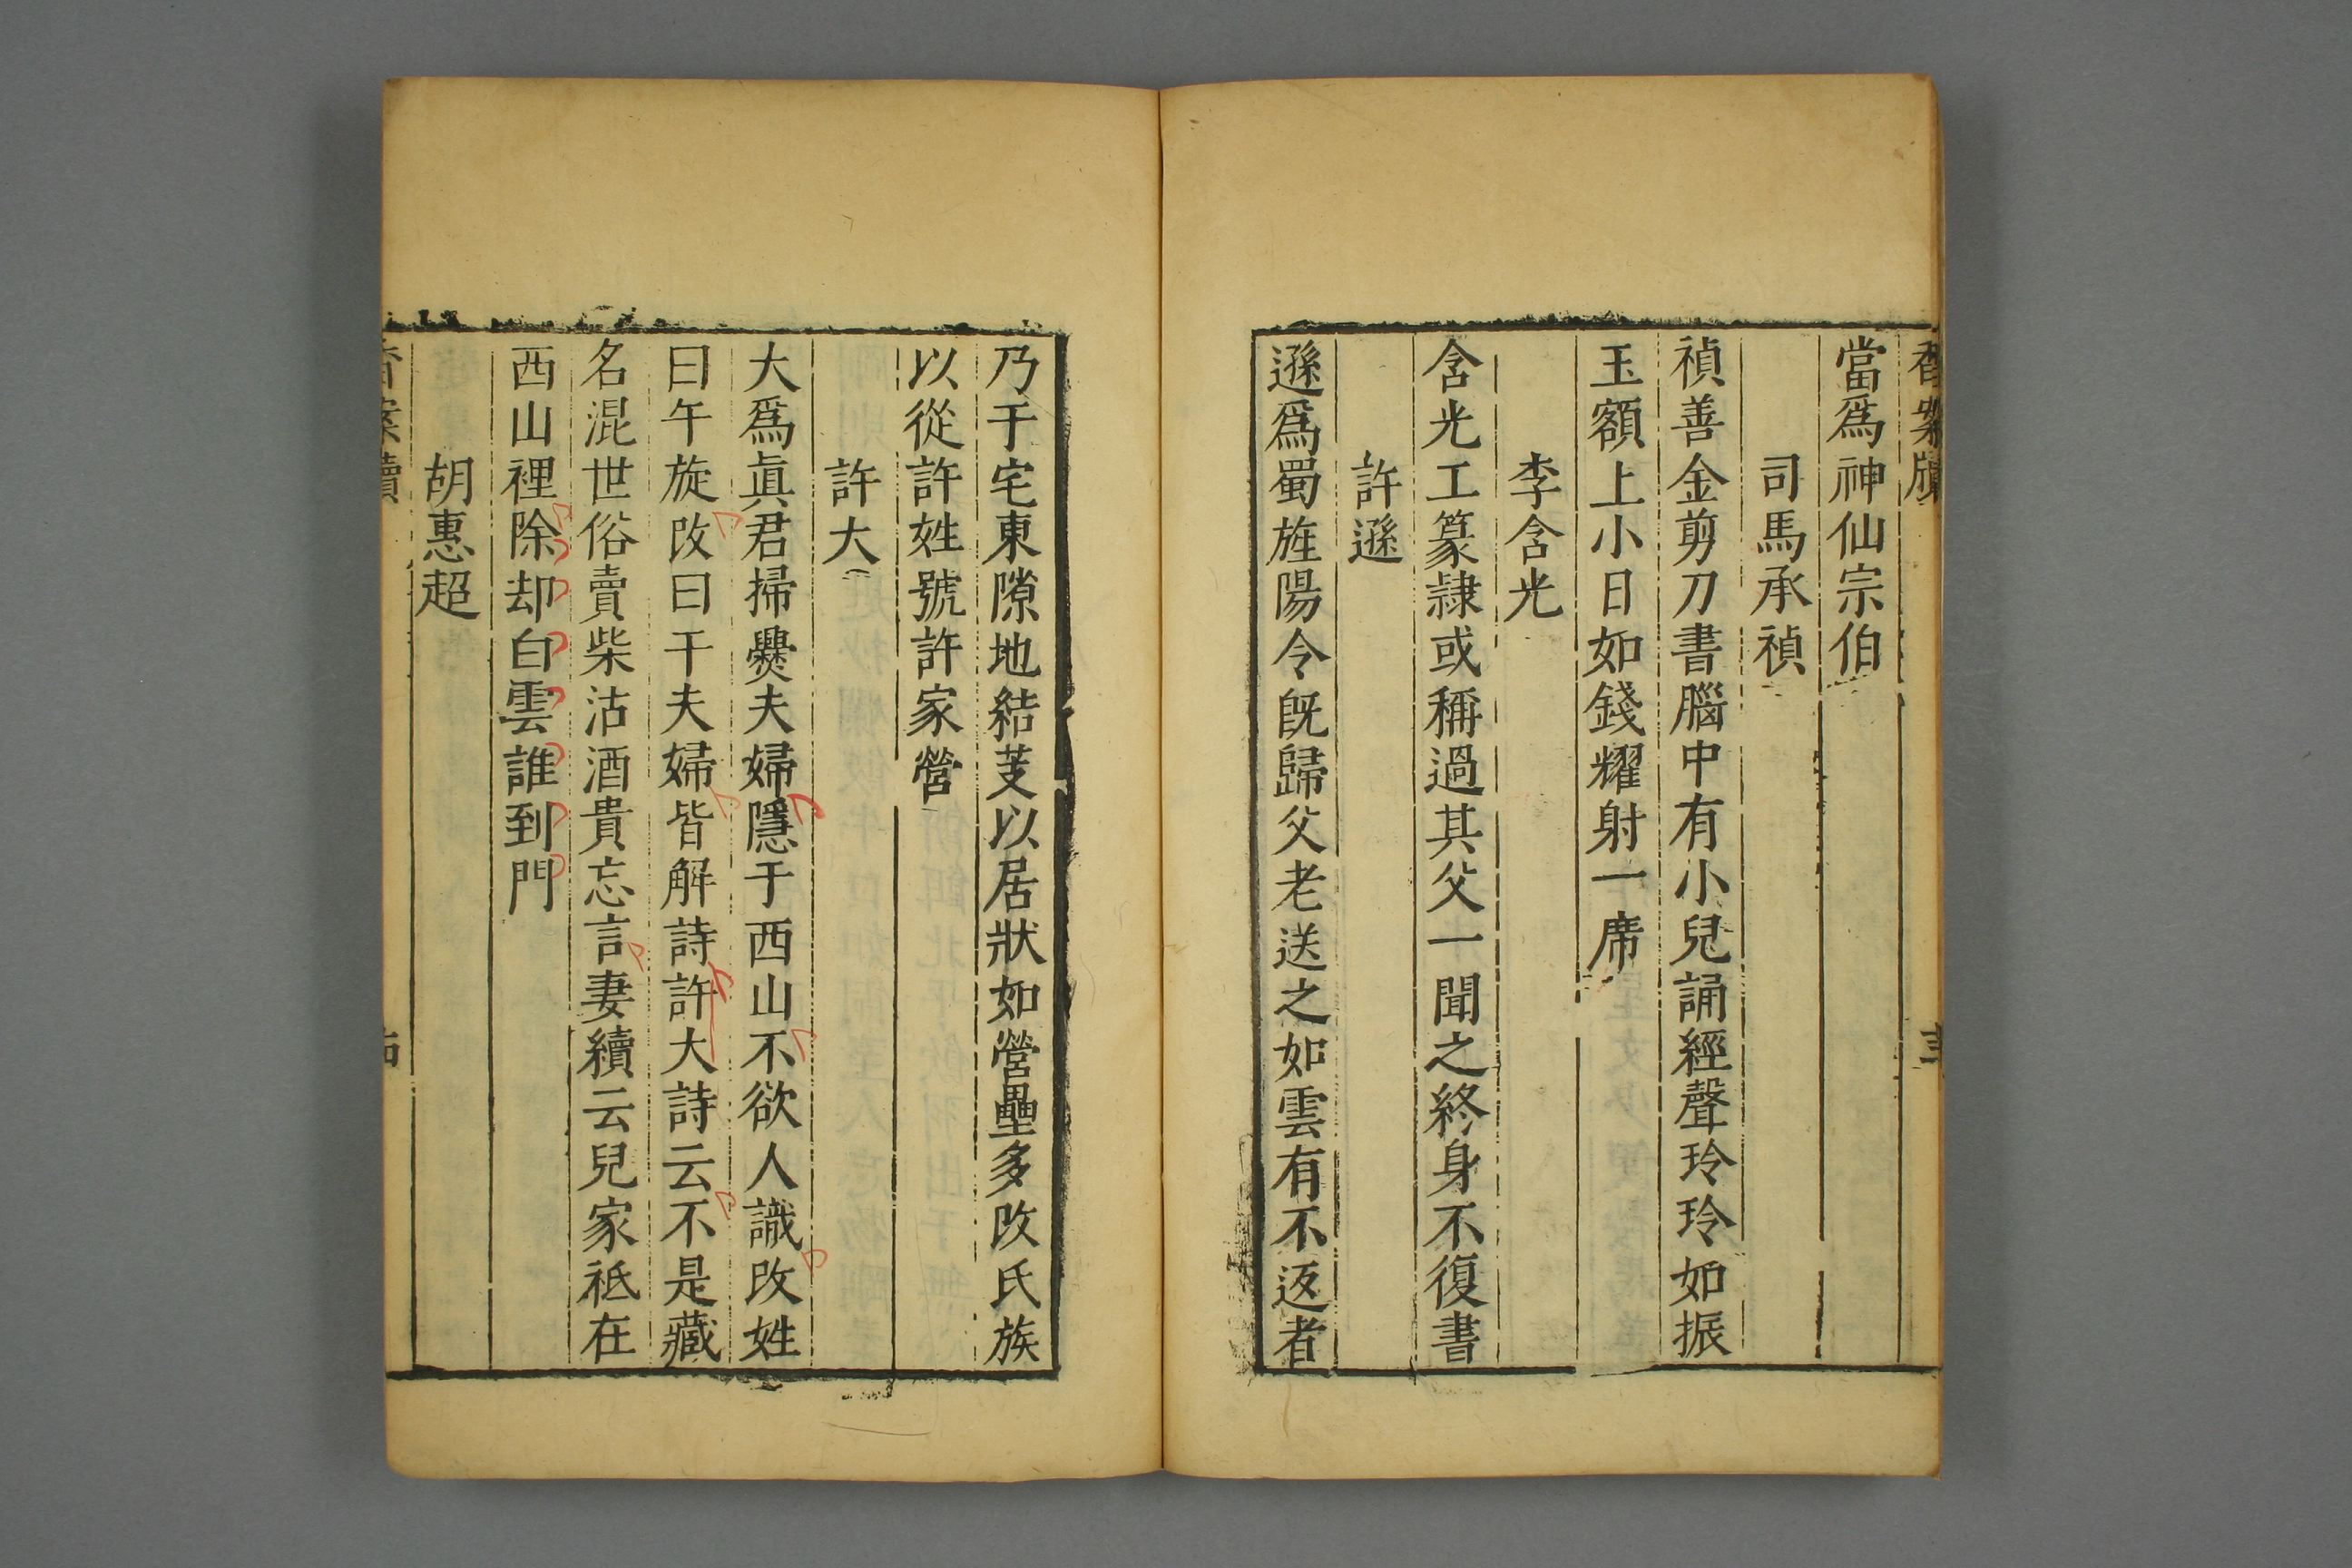 香案牘
當爲神仙宗伯
司馬承禎
禎善金剪刀書腦中有小兒誦經聲玲玲如振
玉額上小日如錢耀射一席
李含光
含光工篆隸或稱過其父一聞之終身不復書
許遜
遜爲蜀旌陽令旣歸父老送之如雲有不返者
乃于宅東隙地結茇以居狀如營壘多改氏族
以從許姓號許家營
許大
大爲眞君掃爨夫婦隱于西山不欲人識改姓
曰午旋改曰干夫婦皆解詩許大詩云不是藏
名混世俗賣柴沽酒貴忘言妻續云兒家祗在
西山裡除却白雲誰到門
胡惠超
香案牘